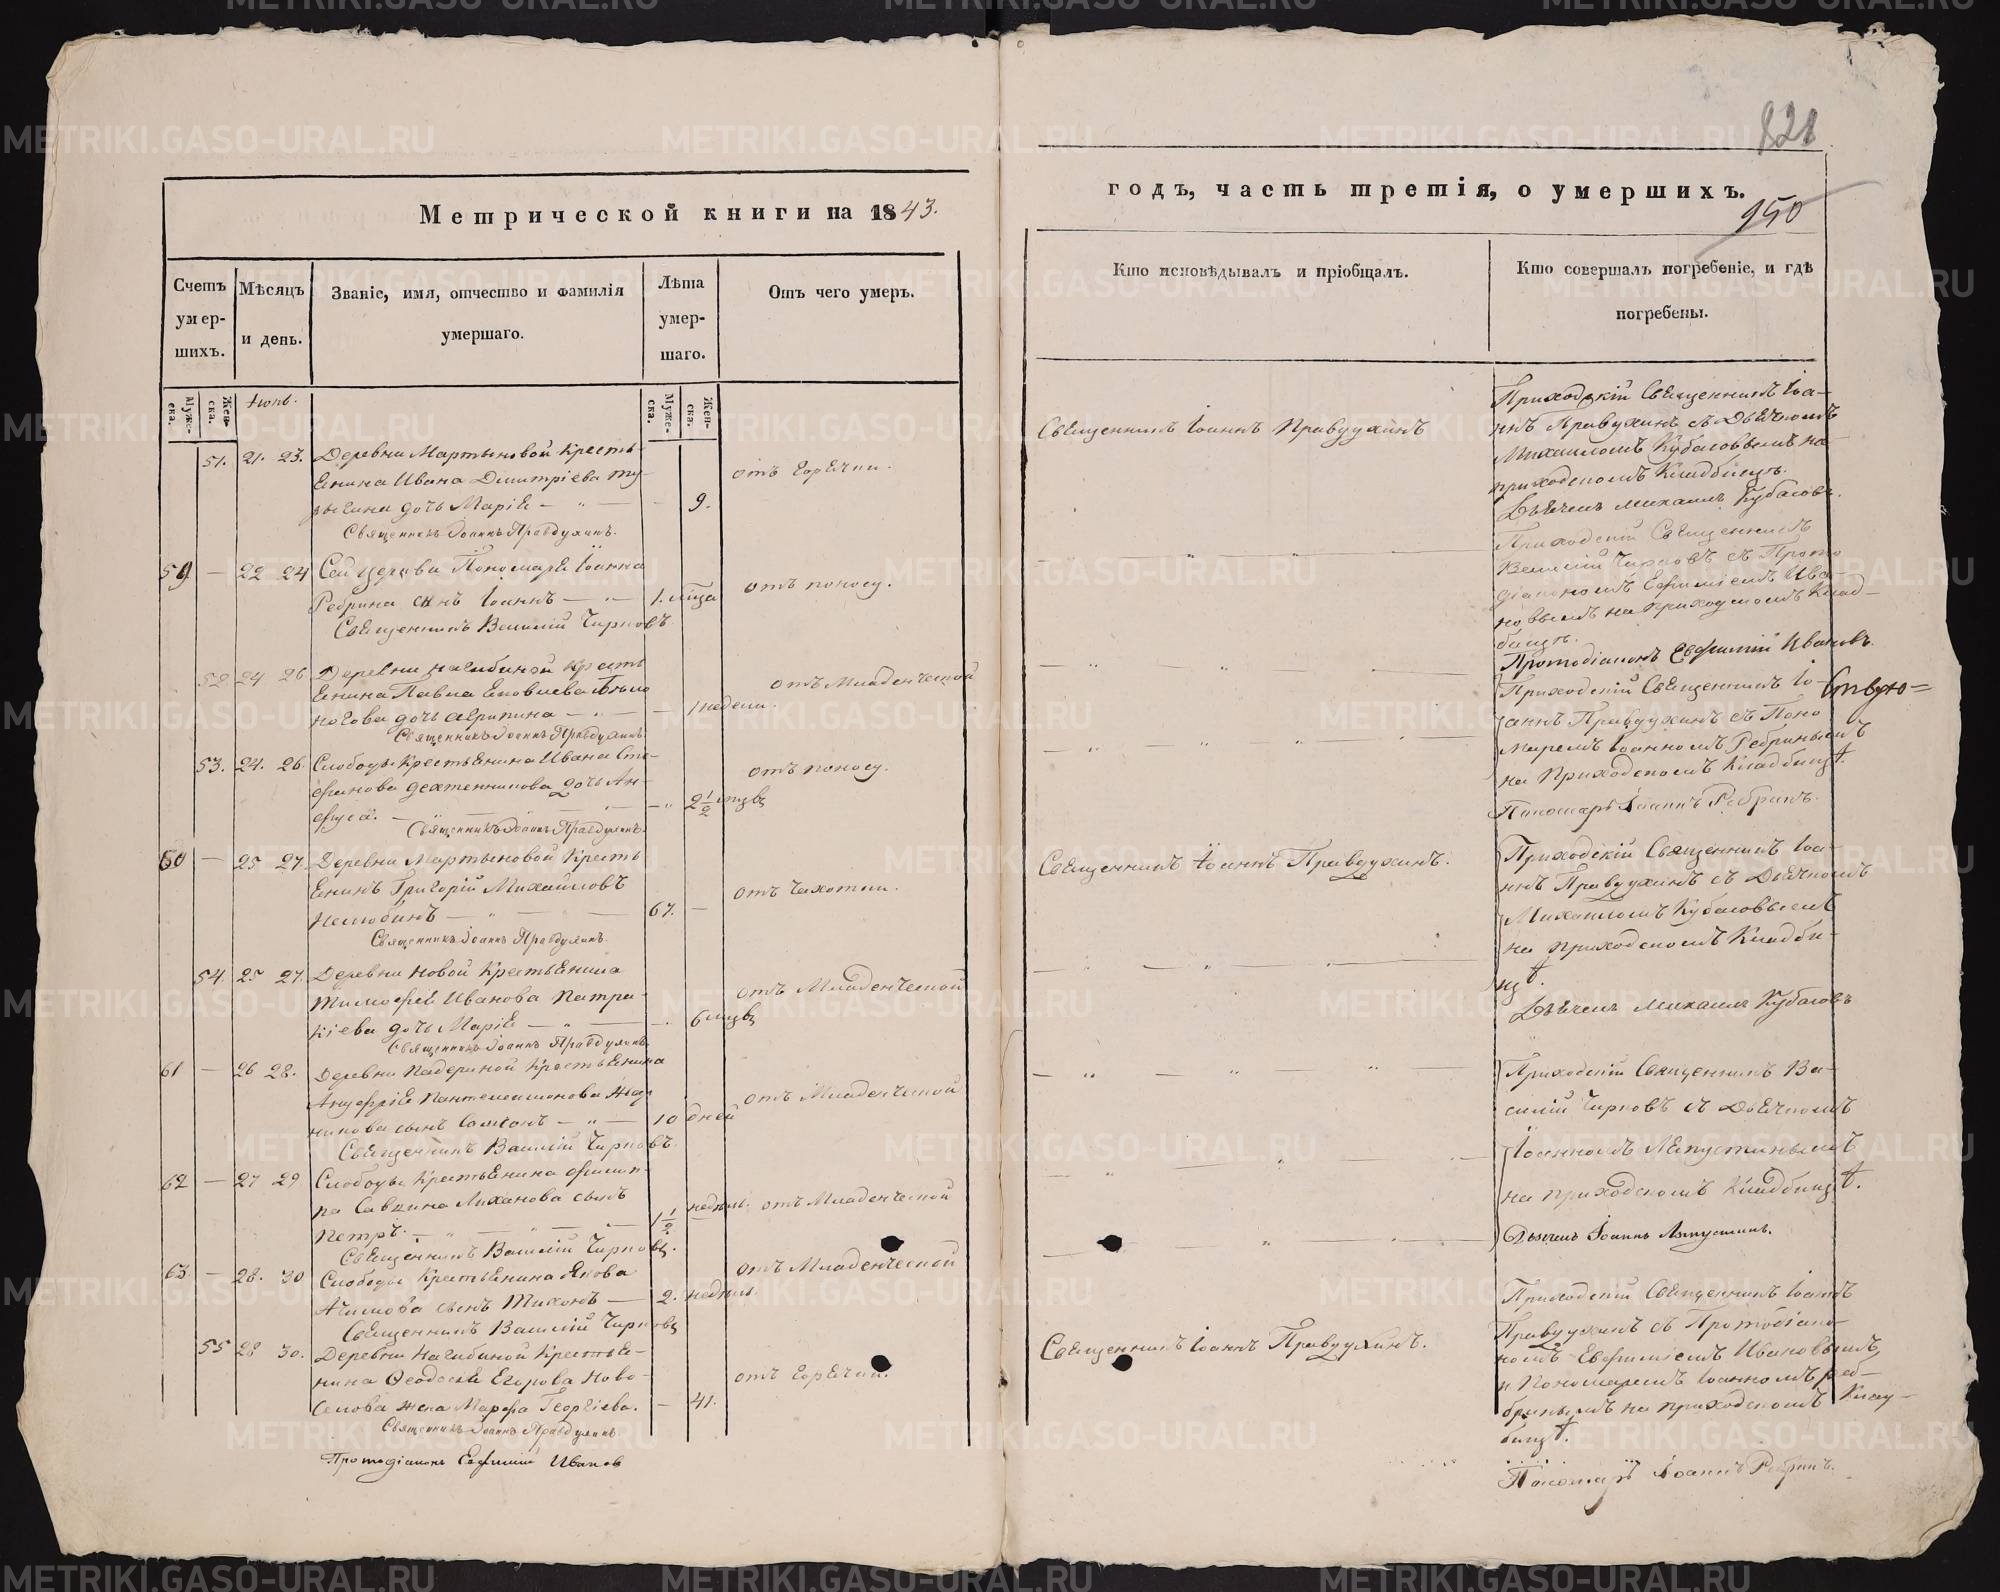 828
Метрической книги на 1843.
годъ, часть третія, о умершихъ.
950
Счетъ умершихъ.
Мѣсяцъ и день.
Званіе, имя, отчество и фамилія умершаго.
Лѣта умершаго.
Отъ чего умеръ.
Кто исповѣдывалъ и пріобщалъ.
Кто совершалъ погребеніе, и гдѣ погребены.
Мужеска.
Женска.
Мужеска.
Женска.
51. 21. 23. Деревни Мартыновой Кресть-
янина Ивана Димитріева
дочь Марія 9.
отъ горячки.
Священникъ Іоаннъ Правдухинъ.
Священникъ Іоаннъ Правдухинъ
Приходскій Священникъ Іоа-
ннъ Правдухинъ съ Дьячкомъ
Михаиломъ Кубасовымъ на
приходскомъ Кладбищѣ.
Дьячекъ Михаилъ Кубасовъ.
59 22 24 Сей церкви Пономаря Іоанна
Ребрина сынъ Іоаннъ 1. мѣца
отъ поносу.
Священникъ Василій Чирковъ
Приходскій Священникъ
Василій Чирковъ съ Прото
діакономъ Евфиміемъ Ива-
новымъ на приходскомъ Клад-
бищѣ.
Протодіаконъ Евфимій Ивановъ.
52 24 26 Деревни Нагибиной Кресть
янина Павла Яковлева Бѣло
ногова дочь Агрипина 1 недели.
отъ Младенческой
Священникъ Іоаннъ Правдухинъ.
Приходскій Священникъ Іо-
аннъ Правдухинъ съ Поно
маремъ Іоанномъ Ребринымъ
на Приходскомъ Кладбищѣ.
Пономарь Іоаннъ Ребринъ.
53. 24. 26. Слободы Крестьянина Ивана Сте-
фанова Дехтенникова дочь Ан-
фуса. 2 1/2 мцвъ
отъ поносу.
Священникъ Іоаннъ Правдухинъ.
60 25 27. Деревни Мартыновой Кресть
янинъ Григорій Михайловъ
Нелюбинъ 67.
отъ Чахотки.
Священникъ Іоаннъ Правдухинъ.
Священникъ Іоаннъ Правдухинъ.
Приходскій Священникъ Іоа-
ннъ Правдухинъ съ Дьячкомъ
Михаиломъ Кубасовымъ
на приходскомъ Кладби-
щѣ.
Дьячекъ Михаилъ Кубасовъ
54. 25 27. Деревни Новой Крестьянина
Тимофея Иванова Патра-
кіева дочь Марія 6 мцвъ
отъ Младенческой
Священникъ Іоаннъ Правдухинъ
61 26 28. Деревни Падериной Крестьянина
Пантелеимонова
сынъ 10 дней
отъ Младенческой
Священникъ Василій Чирковъ.
Приходскій Священникъ Ва-
силій Чирковъ съ Дьячкомъ
Іоанномъ Ляпустинымъ
на приходскомъ Кладбищѣ.
Дьячекъ Іоаннъ Ляпустинъ.
62 27 29 Слободы Крестьянина Филип-
па Савкина Лиханова сынъ
Петръ. 1 1/2 недѣль.
отъ Младенческой
Священникъ Василій Чирковъ.
63 28. 30 Слободы Крестьянина Якова
сынъ Тихонъ 2. недѣль.
отъ Младенческой
Священникъ Василій Чирковъ
55 28 30. Деревни Нагибиной Крестья-
нина Ѳеодосія Егорова Ново-
селова жена Марфа Георгіева. 41.
отъ горячки.
Священникъ Іоаннъ Правдухинъ.
Протодіаконъ Евфимій Ивановъ
Священникъ Іоаннъ Правдухинъ.
Приходскій Священникъ Іоаннъ
Правдухинъ съ Протодіако-
номъ Евфиміемъ Ивановымъ
и Пономаремъ Іоанномъ Реб-
ринымъ на приходскомъ Клад-
бищѣ.
Пономарь Іоаннъ Ребринъ.
METRIKI.GASO-URAL.RU